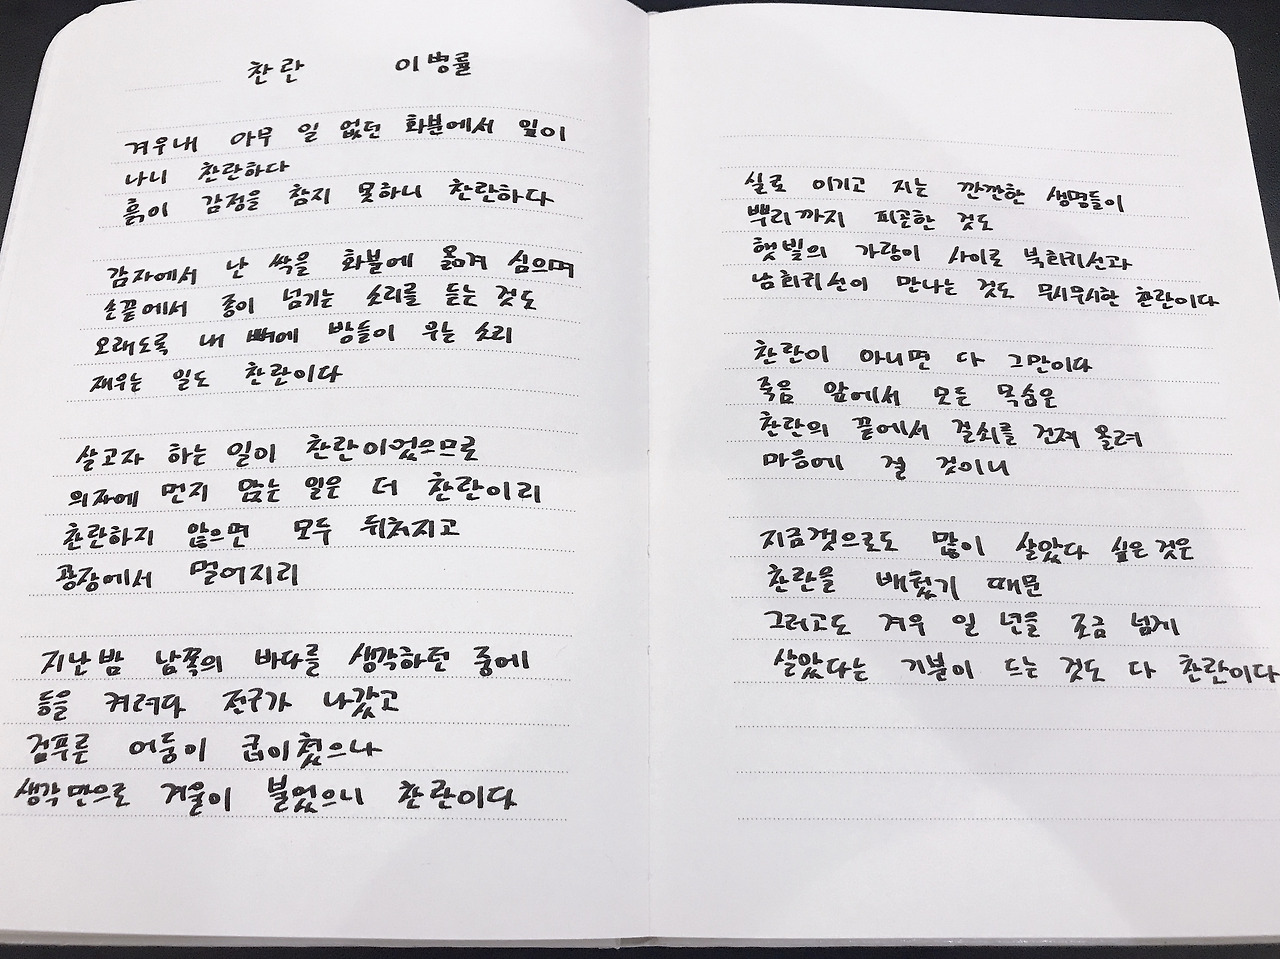 찬란 이병률
겨우내 아무 일 없던 화분에서 잎이
나니 찬란하다
흙이 감정을 참지 못하니 찬란하다
감자에서 난 싹을 화분에 옮겨 심으며
손끝에서 종이 넘기는 소리를 듣는 것도
오래도록 내 뼈에 방들이 우는 소리
재우는 일도 찬란이다
살고자 하는 일이 찬란이었으므로
의자에 먼지 앉는 일은 더 찬란이리
찬란하지 않으면 모두 뒤처지고
광장에서 멀어지리
지난밤 남쪽의 바다를 생각하던 중에
등을 켜려다 전구가 나갔고
검푸른 어둠이 굽이쳤으나
생각만으로 겨울이 불었으니 찬란이다
실로 이기고 지는 깐깐한 생명들이
뿌리까지 피곤한 것도
햇빛의 가랑이 사이로 북회귀선과
남회귀선이 만나는 것도 무시무시한 찬란이다
찬란이 아니면 다 그만이다
죽음 앞에서 모든 목숨은
찬란의 끝에서 걸쇠를 건져 올려
마음에 걸 것이니
지금껏으로도 많이 살았다 싶은 것은
찬란을 배웠기 때문
그러고도 겨우 일 년을 조금 넘게
살았다는 기분이 드는 것도 다 찬란이다